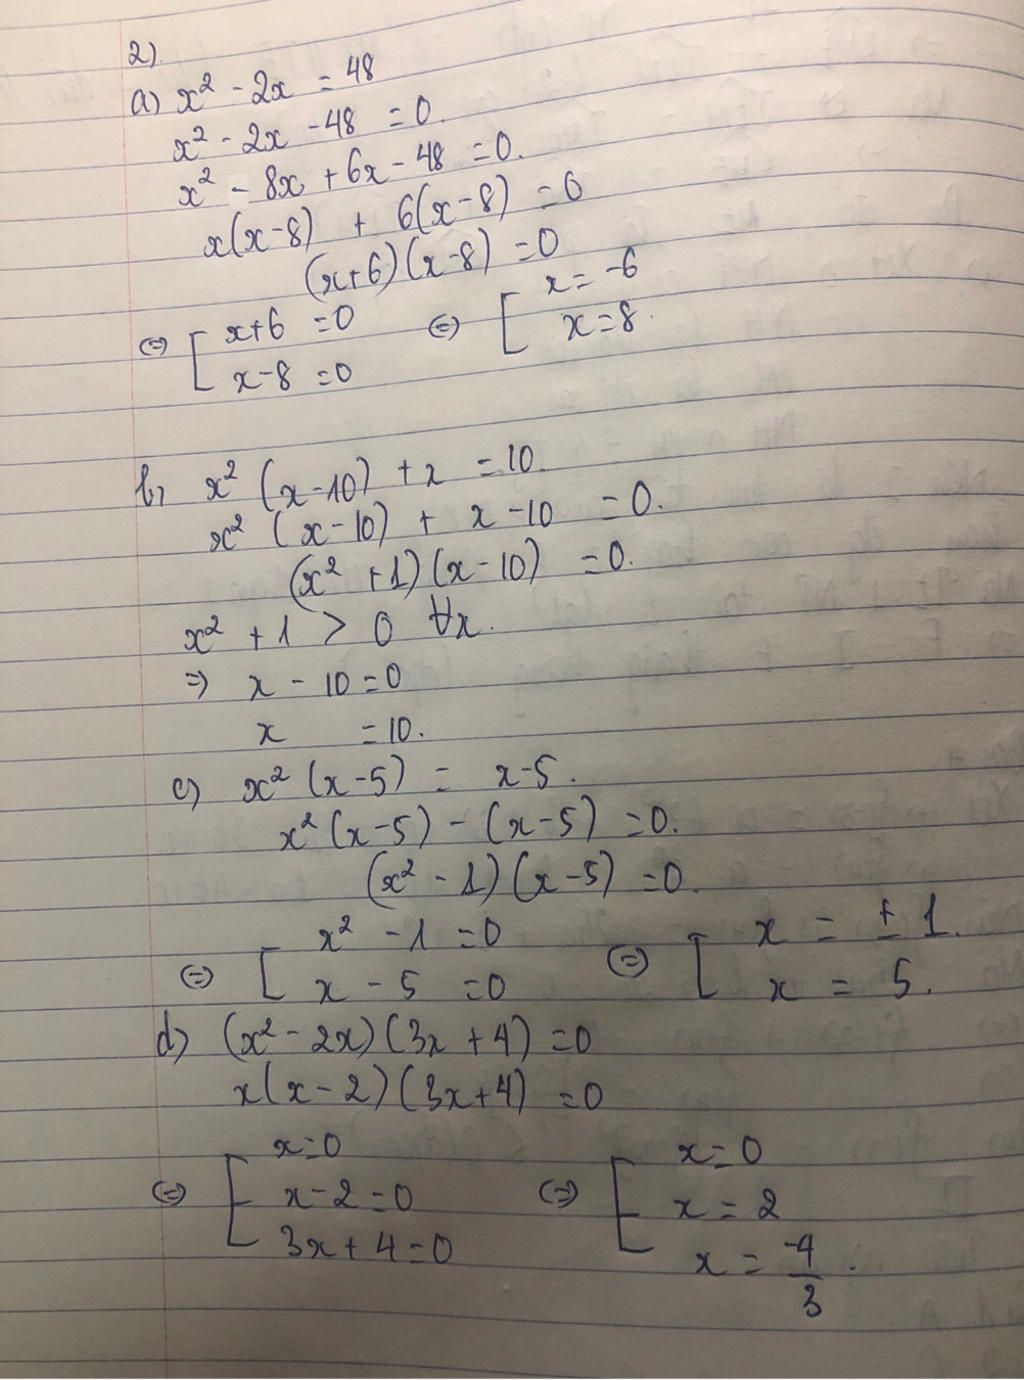 2)
a) x² - 2x = 48
x² - 2x - 48 = 0.
x² - 8x + 6x - 48 = 0.
x(x-8) + 6(x-8) = 0
(x+6)(x-8) = 0
⇔ [ x+6 = 0 ⇔ [ x = -6
x-8 = 0 x = 8.
b, x² (x-10) + x = 10.
x² (x-10) + x - 10 = 0.
(x² + 1)(x-10) = 0.
x² + 1 > 0 ∀x.
⇒ x - 10 = 0
x = 10.
c) x² (x-5) = x-5.
x² (x-5) - (x-5) = 0.
(x² - 1)(x-5) = 0.
⇔ [ x² - 1 = 0 ⇔ [ x = ± 1.
x - 5 = 0 x = 5.
d) (x² - 2x)(3x + 4) = 0
x(x-2)(3x+4) = 0
x=0 x=0
⇔ [ x-2=0 ⇔ [ x = 2
3x+4=0 x = -4/3.